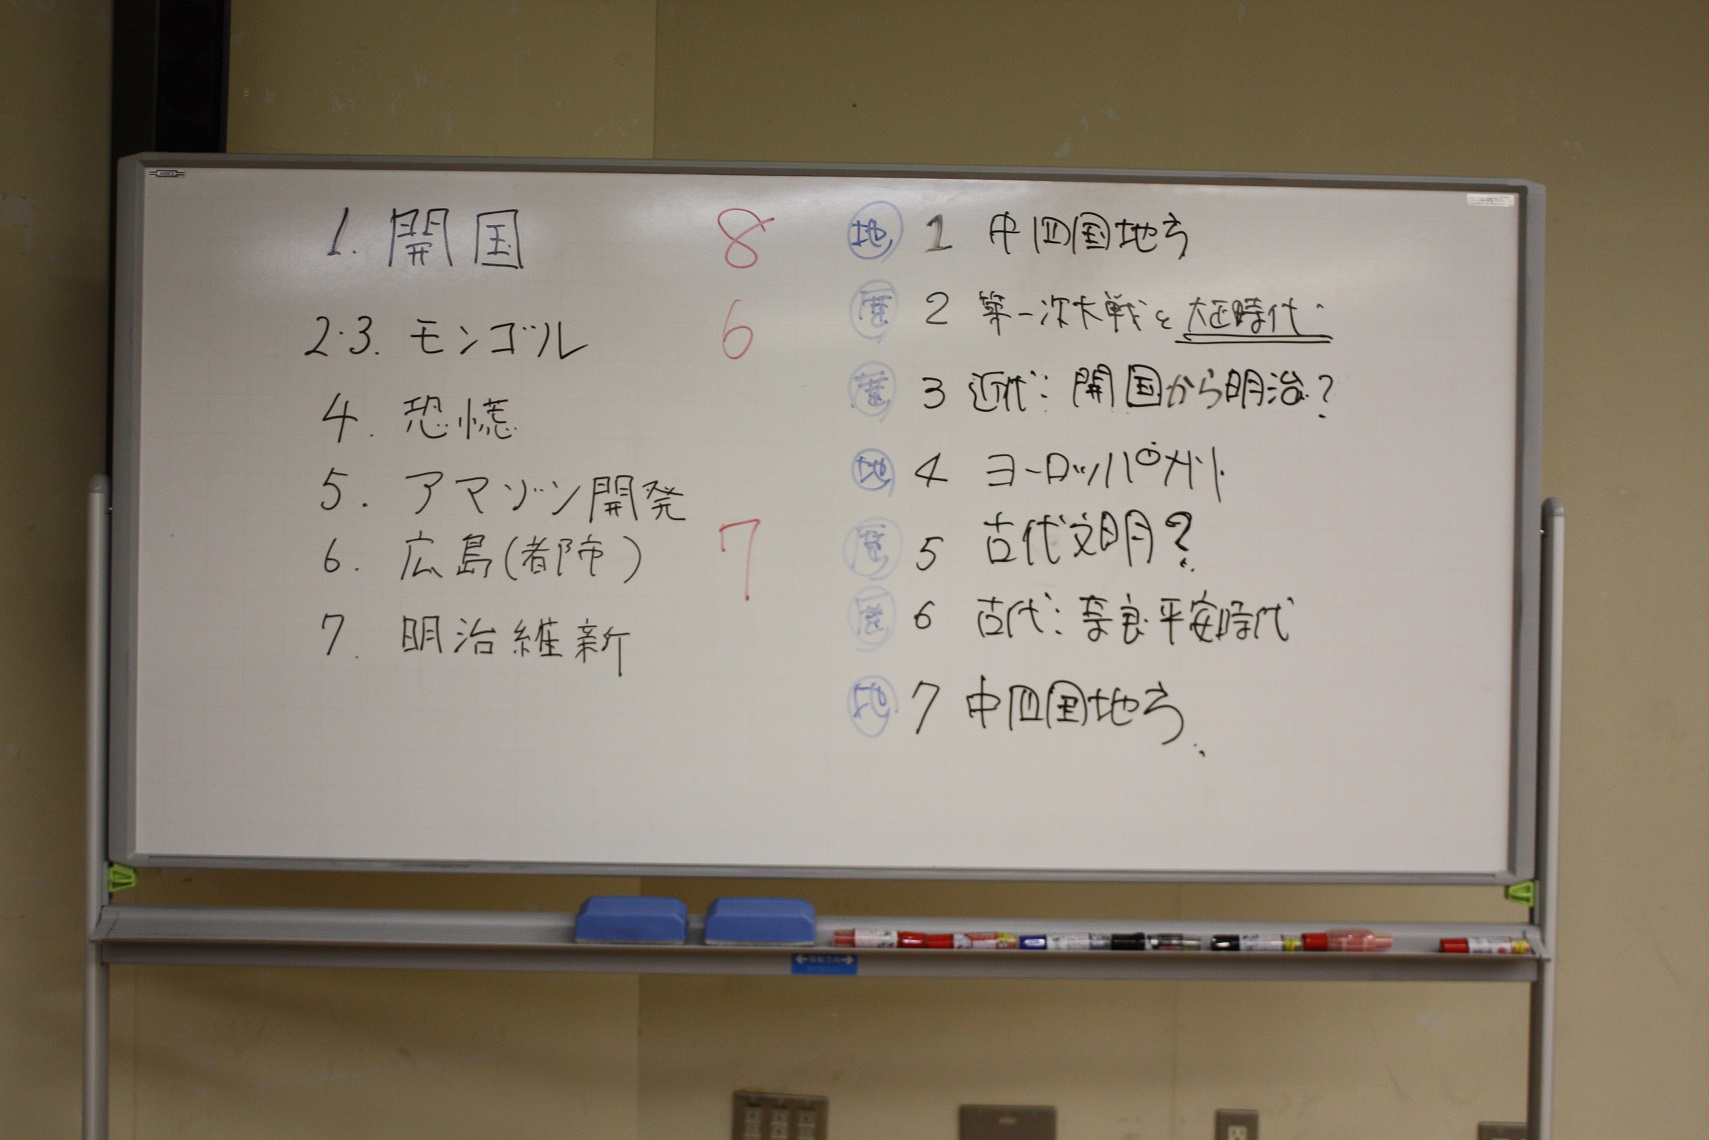 1. 開国 8
2・3. モンゴル 6
4. 恐慌
5. アマゾン開発
6. 広島(都市) 7
7. 明治維新
地 1 中四国地方
歴 2 第一次大戦と大正時代
歴 3 近代:開国から明治?
地 4 ヨーロッパ
歴 5 古代文明?
歴 6 古代:奈良・平安時代
地 7 中四国地方